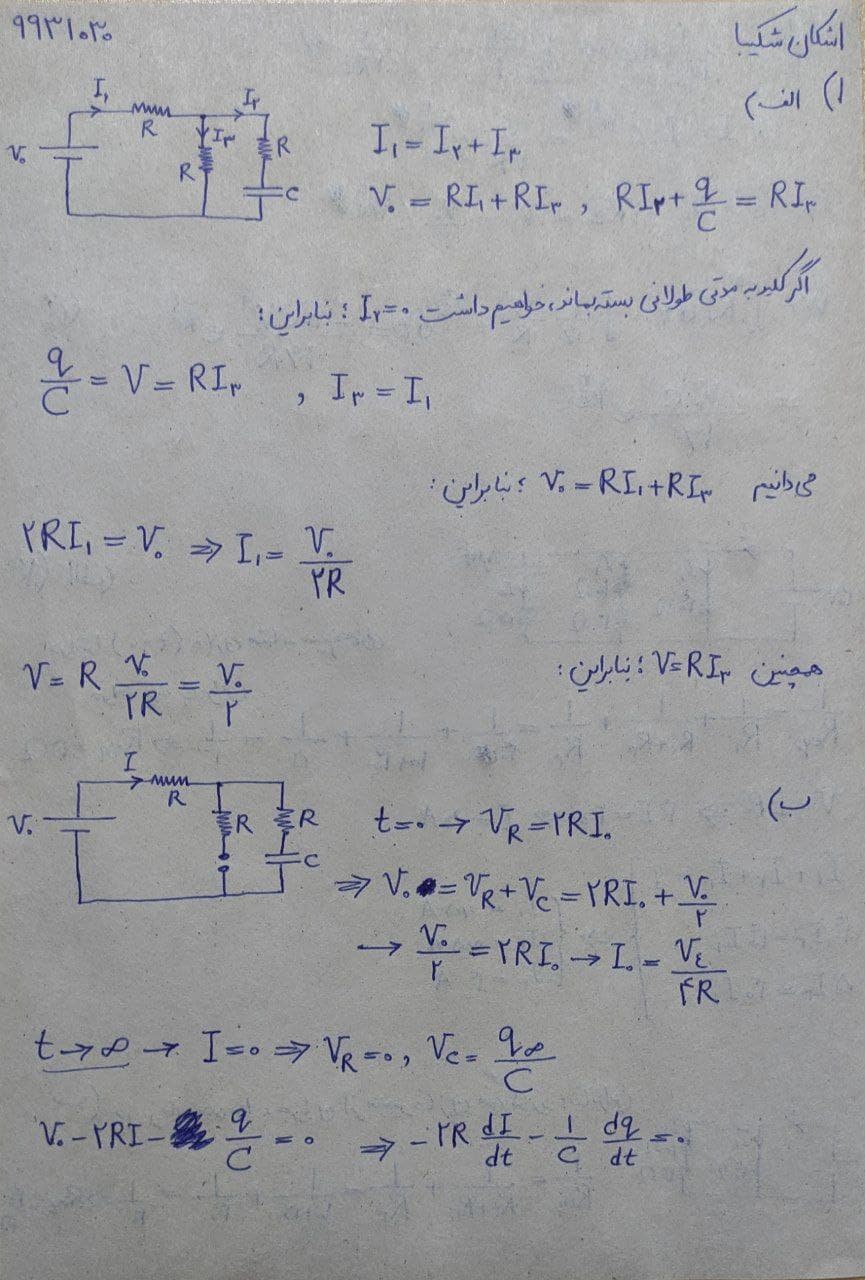 اشکان شکیبا ۹۹۳۱۰۳۰
۱) الف)
I₁ R I₂ I₃ R R C V₀
I₁ = I₂ + I₃
V₀ = RI₁ + RI₃ , RI₂ + q/C = RI₃
اگر کلید به مدتی طولانی بسته بماند، خواهیم داشت I₂=۰ ؛ بنابراین:
q/C = V = RI₃ , I₃ = I₁
می‌دانیم V₀ = RI₁ + RI₃ ؛ بنابراین:
۲RI₁ = V₀ ⇒ I₁ = V₀/۲R
همچنین V=RI₃ ؛ بنابراین:
V = R V₀/۲R = V₀/۲
ب)
I R R R C V₀
t=۰ → V_R = ۲RI₀
⇒ V₀ = V_R + V_C = ۲RI₀ + V₀/۲
→ V₀/۲ = ۲RI₀ → I₀ = V٤/۴R
t→∞ → I=۰ ⇒ V_R=۰ , V_C = q∞/C
V₀ - ۲RI - q/C = ۰ ⇒ -۲R dI/dt - ۱/C dq/dt = ۰